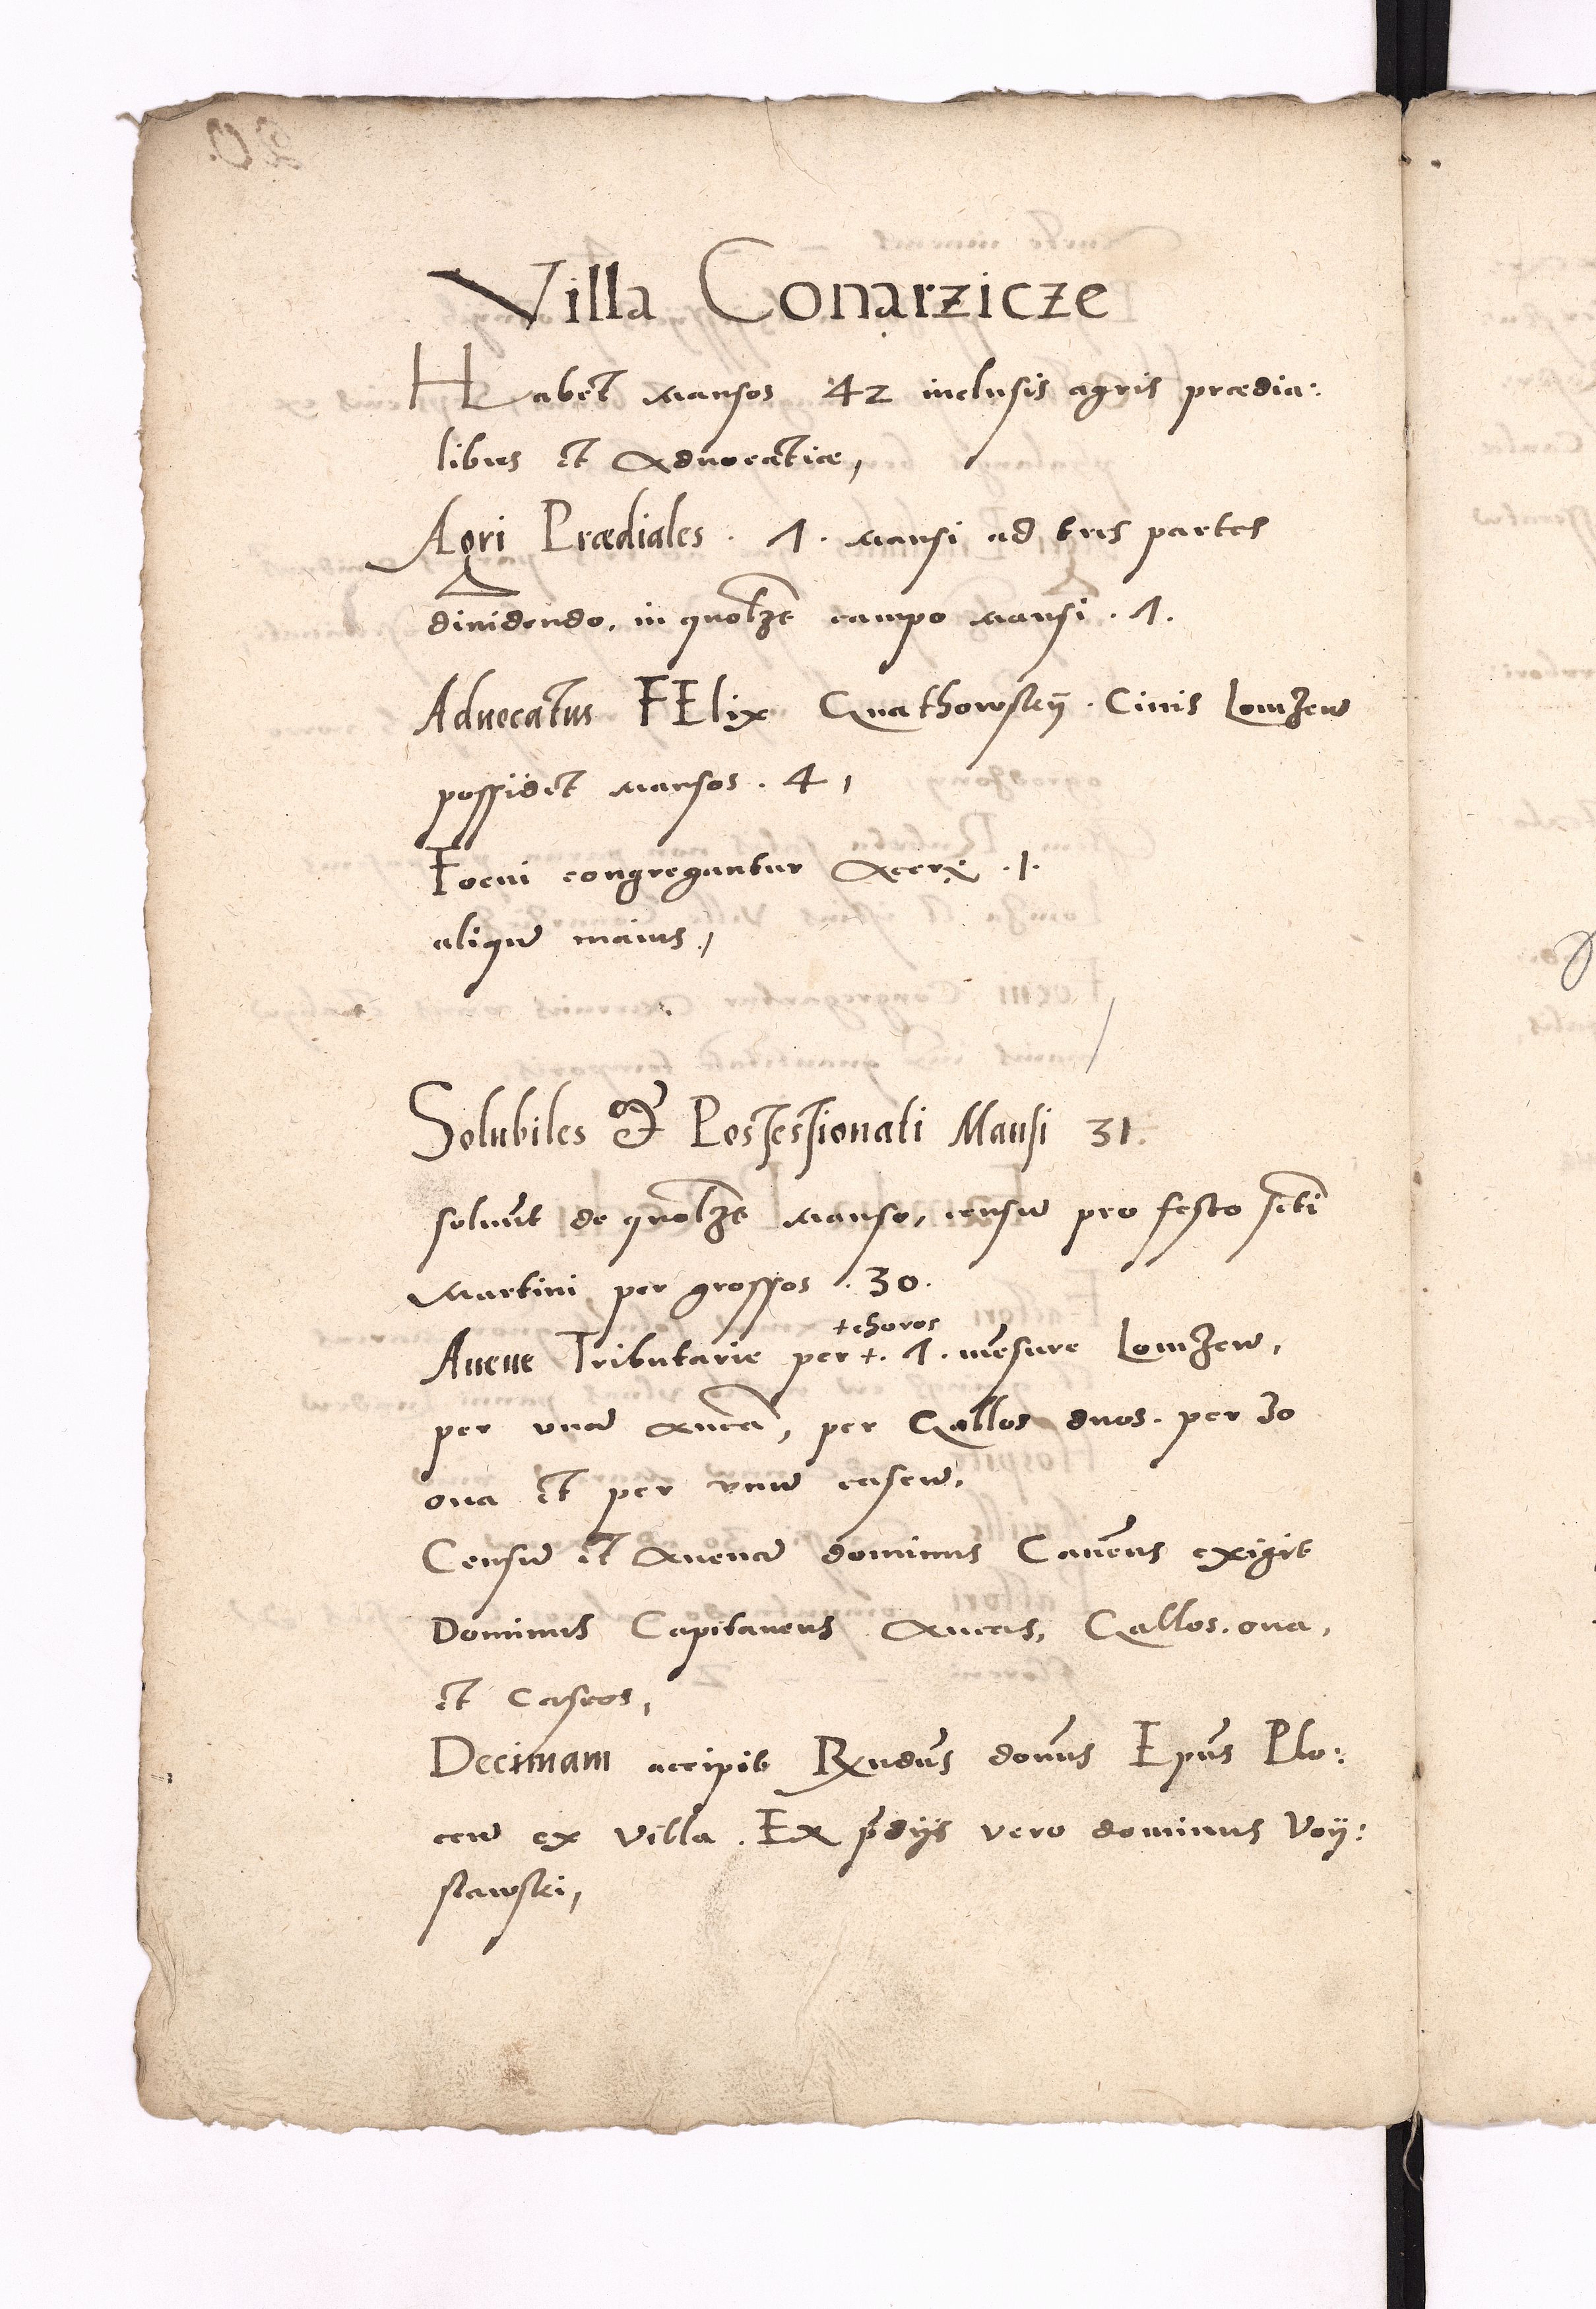 Villa Conarzicze
Habet mansos 42 inclusis agris prædia:
libus et Aduocatiæ,
Agri Prædiales . 1 . mansi ad tres partes
diuidendo, in quolzt campo mansi . 1.
Aduocatus FElix Gnathowskÿ . Ciuis Lomzeñ
possidet mansos . 4,
Foeni congregantur Acerꝯ .1.
aliqñ maius,
Solubiles & Possessionati Mansi 31.
soluūt de quolzt manso, censū pro festo scti
Martini per grossos . 30.
+choros
Auene Tributarie per +. 1. mēsure Lomzeñ,
per vnā aucā, per Gallos duos. per 30
oua et per vnū caseū.
Censū et Auenā dominus Canēus exigit
Dominus Capitaneus Aucas, Gallos. oua,
et Caseos,
Decimam accipit Rxndūs domūs Epūs Plo:
ceñ ex villa . Ex p̄dijs vero dominus Voÿ:
slawski,